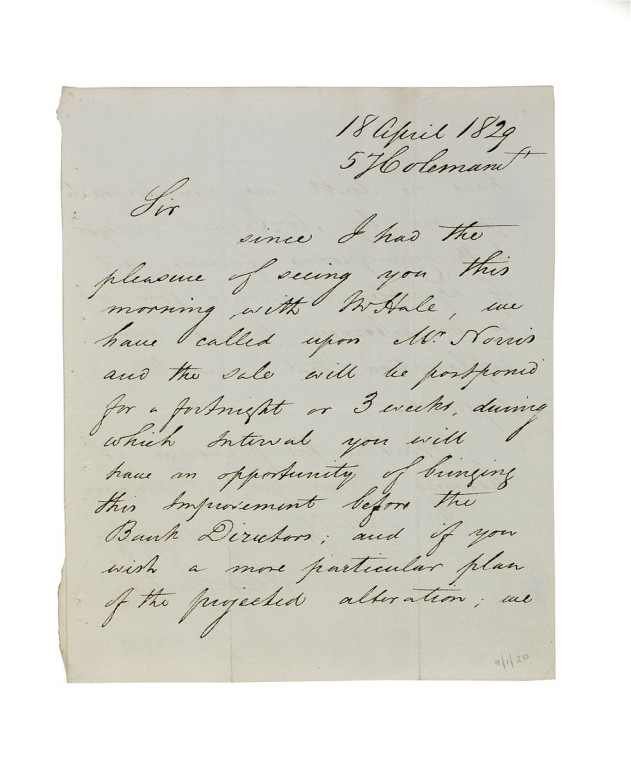 18 April 1829
5 Holeman St
Sir
since I had the
pleasure of seeing you this
morning with Mr Hale, we
have called upon Mr. Norris
and the sale will be postponed
for a fortnight or 3 weeks, during
which Interval you will
have an opportunity of bringing
this Improvement before the
Bank Directors; and if you
wish a more particular plan
of the projected alteration; we
9/1/20